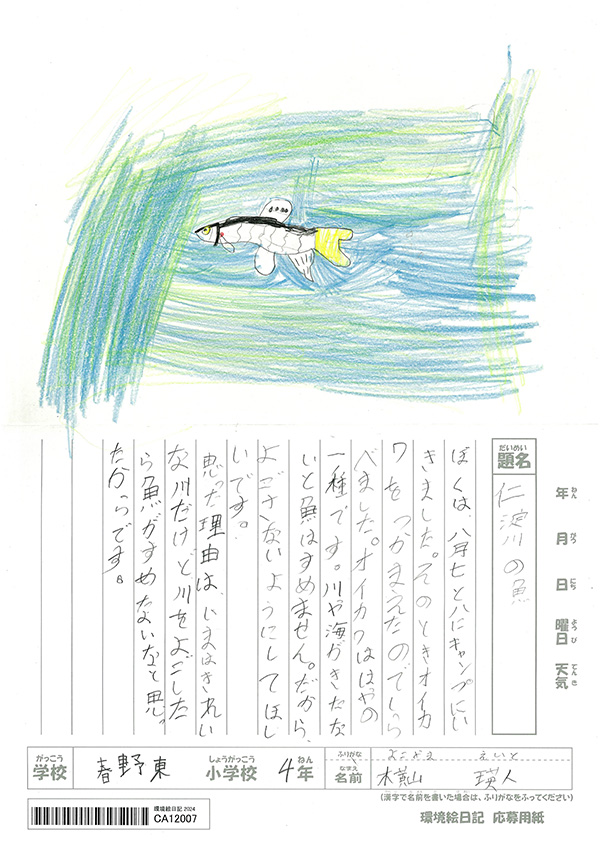 だいめい
題名
仁淀川の魚
年 ねん
月 がつ
日 にち
曜日 ようび
天気 てんき
ぼくは、八月七と八にキャンプにい
きました。そのときオイカ
ワをつかまえたのでしら
べました。オイカワははやの
一種です。川や海がきたな
いと魚はすめません。だから、
よごさないようにしてほし
いです。
思った理由は、いまはきれい
な川だけど川をよごした
ら魚がすめないなと思っ
たからです。
がっこう
学校
春野東
しょうがっこう
小学校
4
ねん
年
ふりがな
よこやま えいと
なまえ
名前
横山 瑛人
(漢字で名前を書いた場合は、ふりがなをふってください)
環境絵日記 2024
CA12007
環境絵日記 応募用紙